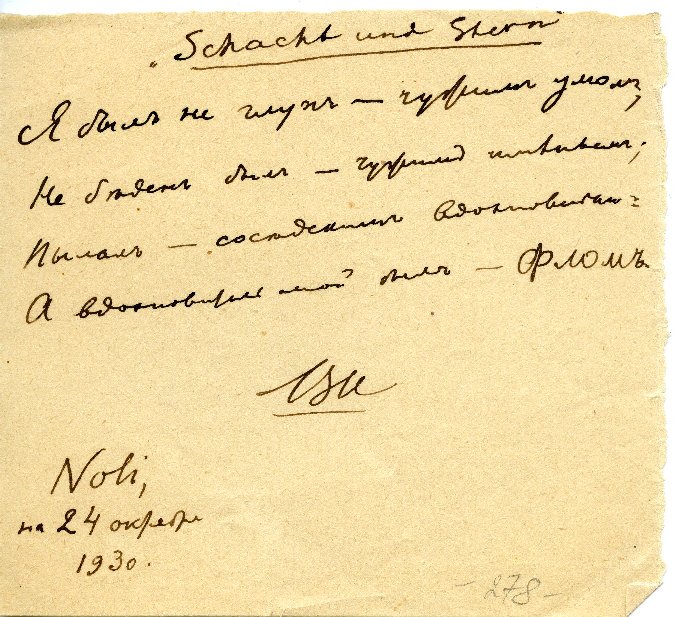 "Schacht und Stern"
Я былъ не глухъ — чужимъ умомъ,
Не бѣденъ былъ — чужимъ
Пылалъ — сосѣдскимъ вдохновеньемъ
А вдохновитель мой былъ — ФЛОМЪ
Noli,
на 24 октября
1930.
-278-